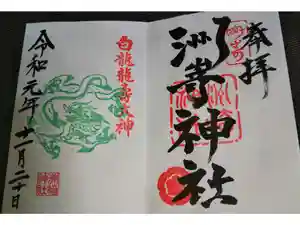 奉拝
洲嵜神社
白龍龍寿大神
令和元年十一月二十日